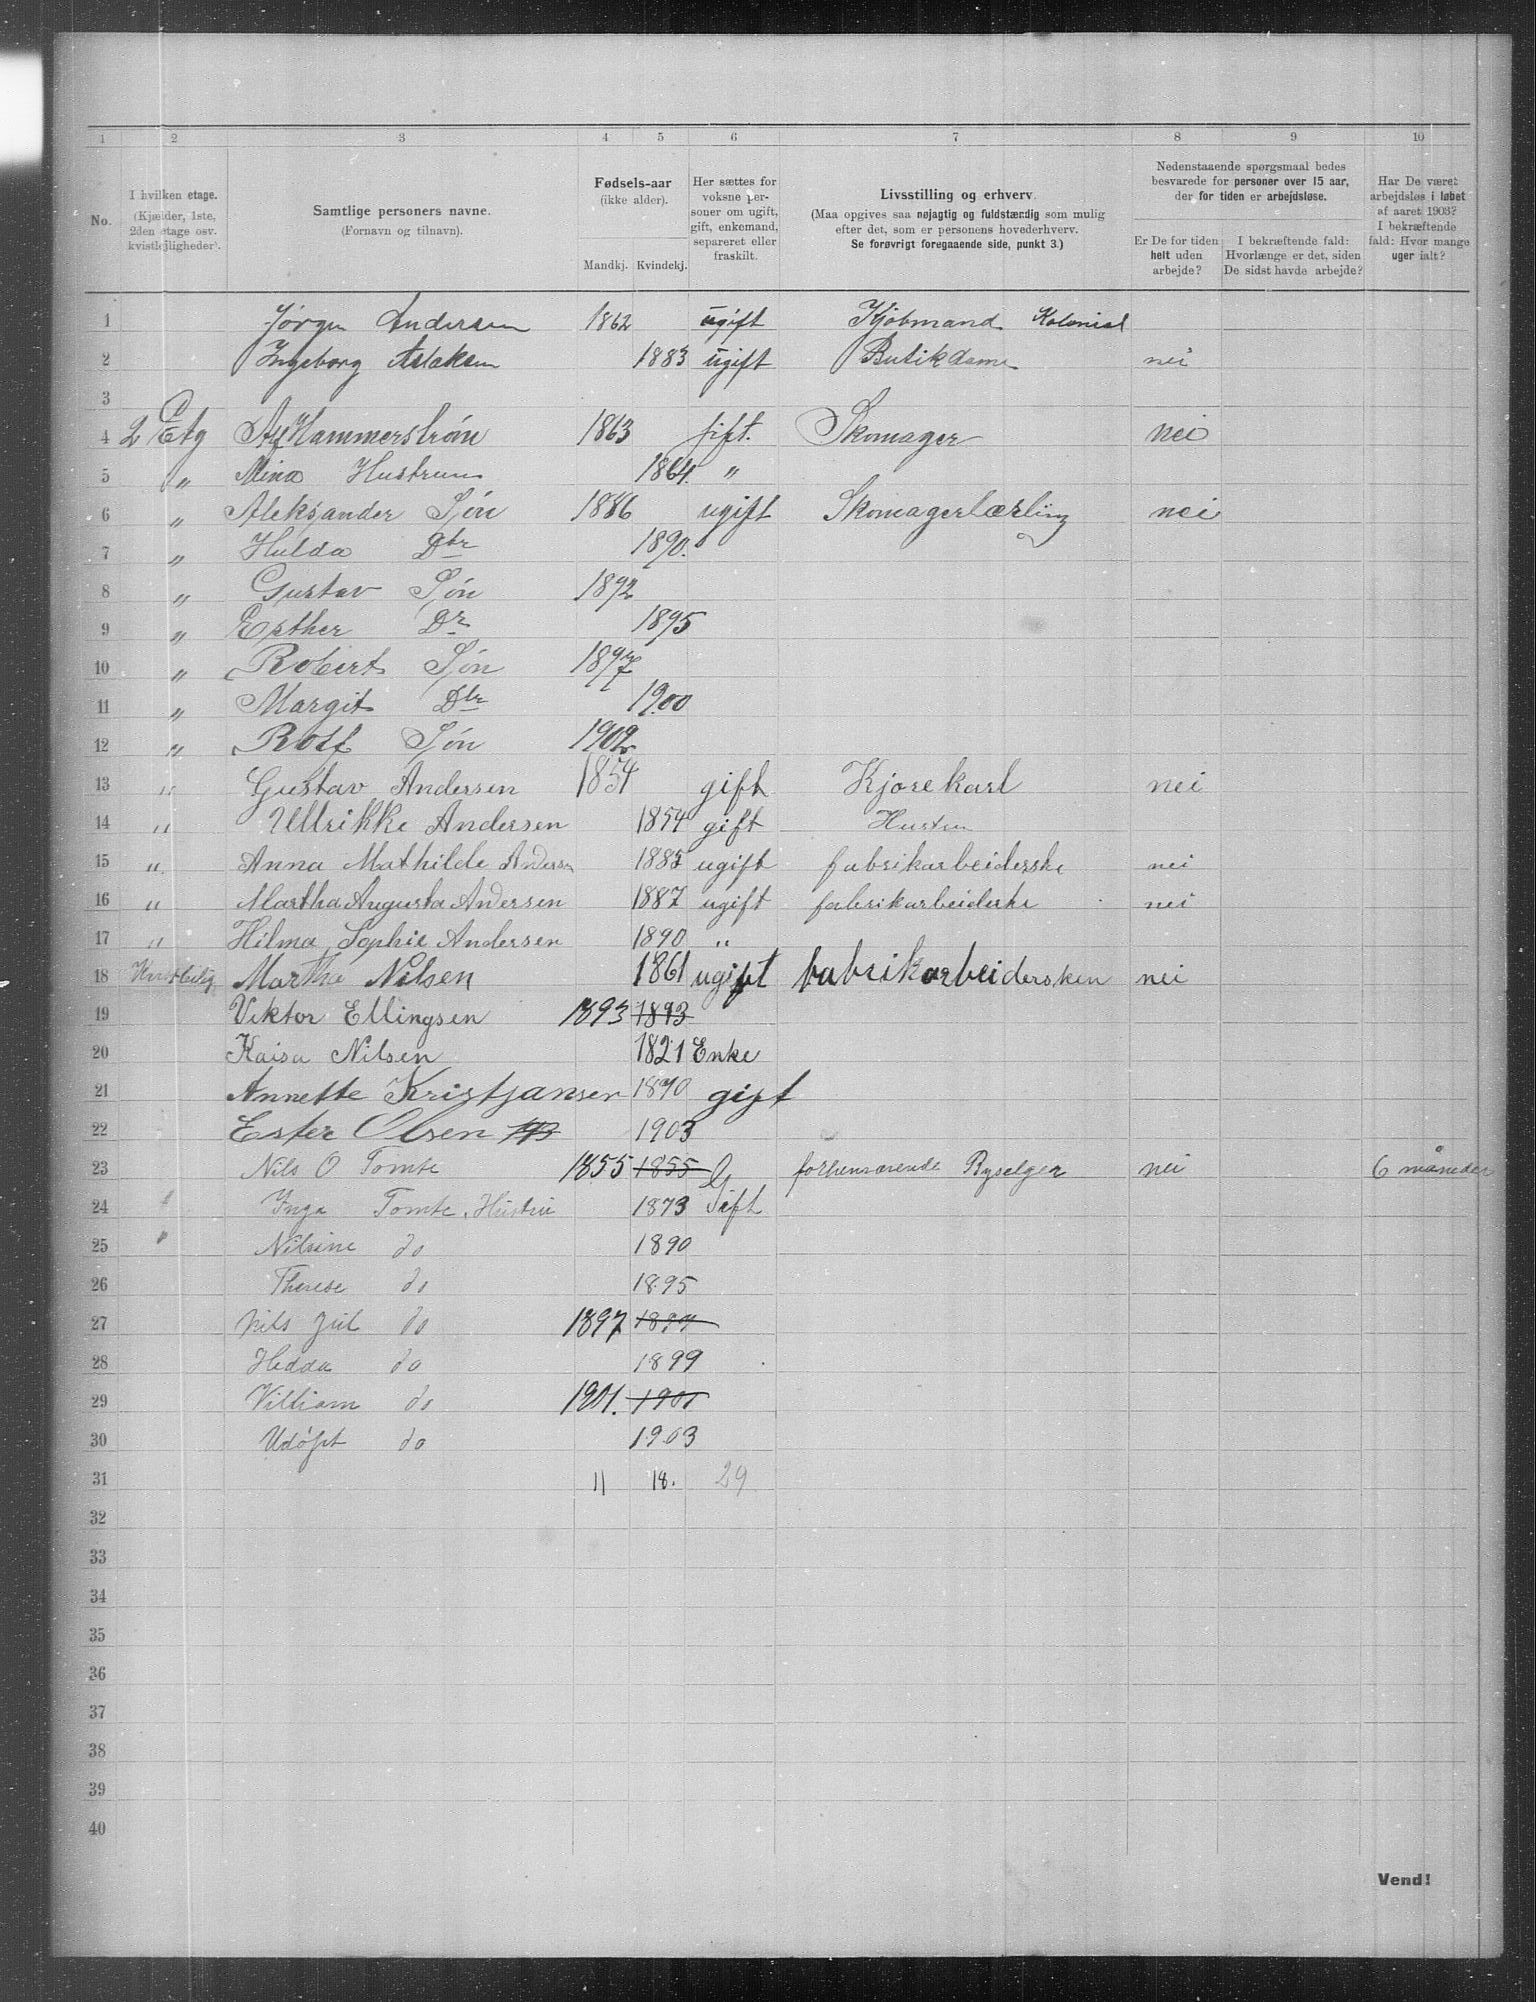 1 2 3 4 5 6 7 8 9 10
No.
I hvilken etage.
(Kjælder, 1ste, 2den etage osv. kvistlejligheder).
Samtlige personers navne.
(Fornavn og tilnavn).
Fødsels-aar
(ikke alder).
Mandkj. Kvindekj.
Her sættes for voksne personer om ugift, gift, enkemand, separeret eller fraskilt.
Livsstilling og erhverv.
(Maa opgives saa nøjagtig og fuldstændig som mulig efter det, som er personens hovederhverv.
Se forøvrigt foregaaende side, punkt 3.)
Nedenstaaende spørgsmaal bedes besvarede for personer over 15 aar, der for tiden er arbejdsløse.
Er De for tiden helt uden arbejde?
I bekræftende fald: Hvorlænge er det, siden De sidst havde arbejde?
Har De været arbejdsløs i løbet af aaret 1903? I bekræftende fald: Hvor mange uger ialt?
1 Jørgen Andersen 1862 ugift Kjøbmand Kolonial
2 Ingeborg Aslaksen 1883 ugift Butikdame nei
3
4 2 Etg Hammerstrøm 1863 gift. Skomager nei
5 " Mina Hustrue 1864. "
6 " Aleksander Søn 1886 ugift Skomagerlærling nei
7 " Hulda Dtr 1890.
8 " Gustav Søn 1892
9 " Esther Dr 1895
10 " Robert Søn 1897
11 " Margit Dtr 1900
12 " Rolf Søn 1902
13 " Gustav Andersen 1854 gift Kjørekarl nei
14 " Ullrikke Andersen 1854 gift Hustru
15 " Anna Mathilde Andersn 1885 ugift fabrikarbeiderske nei
16 " Martha Augusta Andersen 1887 ugift fabrikarbeiderske nei
17 " Hilma Sophie Andersen 1890 "
18 Marthe Nilsen 1861 ugift fabrikarbeidersken nei
19 Viktor Ellingsen 1893 1893
20 Kaisa Nilsen 1821 Enke
21 Annette Kristjansen 1870 gift
22 Ester Olsen 1903
23 Nils O Tomte 1855 1855 G forhenværende Ryselger nei 6 måneder
24 " Inga Tomte, Hustru 1873 Gift
25 " Nilsine do 1890
26 Therese do 1895
27 Nils Juel do 1897 1897
28 Hedda do 1899
29 Villiam do 1901. 1901
30 Udøpt do 1903
31 11 18. 29
32
33
34
35
36
37
38
39
40
Vend!